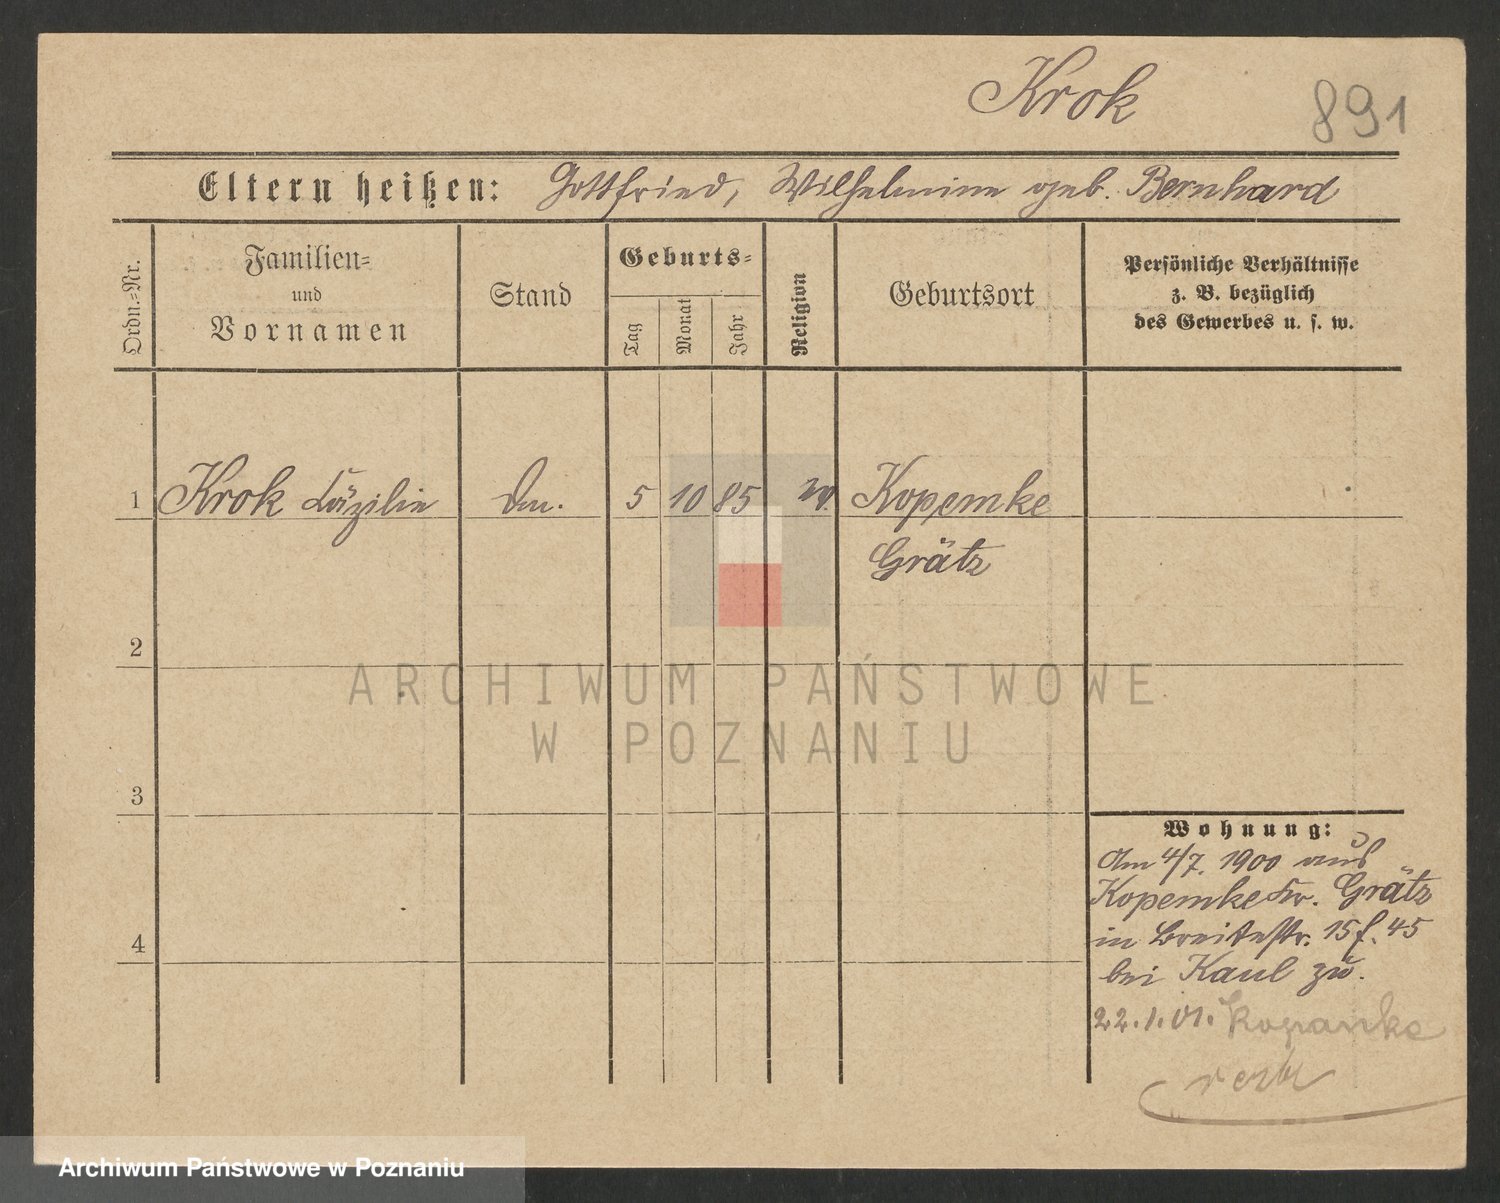 Krok
891
Eltern heißen: Gottfried, Wilhelmine geb. Bernhard
Ordn.=Nr.
Familien=
und
Vornamen
Stand
Geburts=
Tag
Monat
Jahr
Religion
Geburtsort
Persönliche Verhältnisse
z. B. bezüglich
des Gewerbes u. s. w.
1 Krok Cäzilie 5 10 85 Kopemke
Grätz
2
ARCHIWUM PAŃSTWOWE
W POZNANIU
3
Wohnung:
Am 4/7. 1900 aus
Kopemke Kr. Grätz
in Breitestr. 15 f. 45
bei Kaul zu.
4
22.1.01. Kopanke
Archiwum Państwowe w Poznaniu